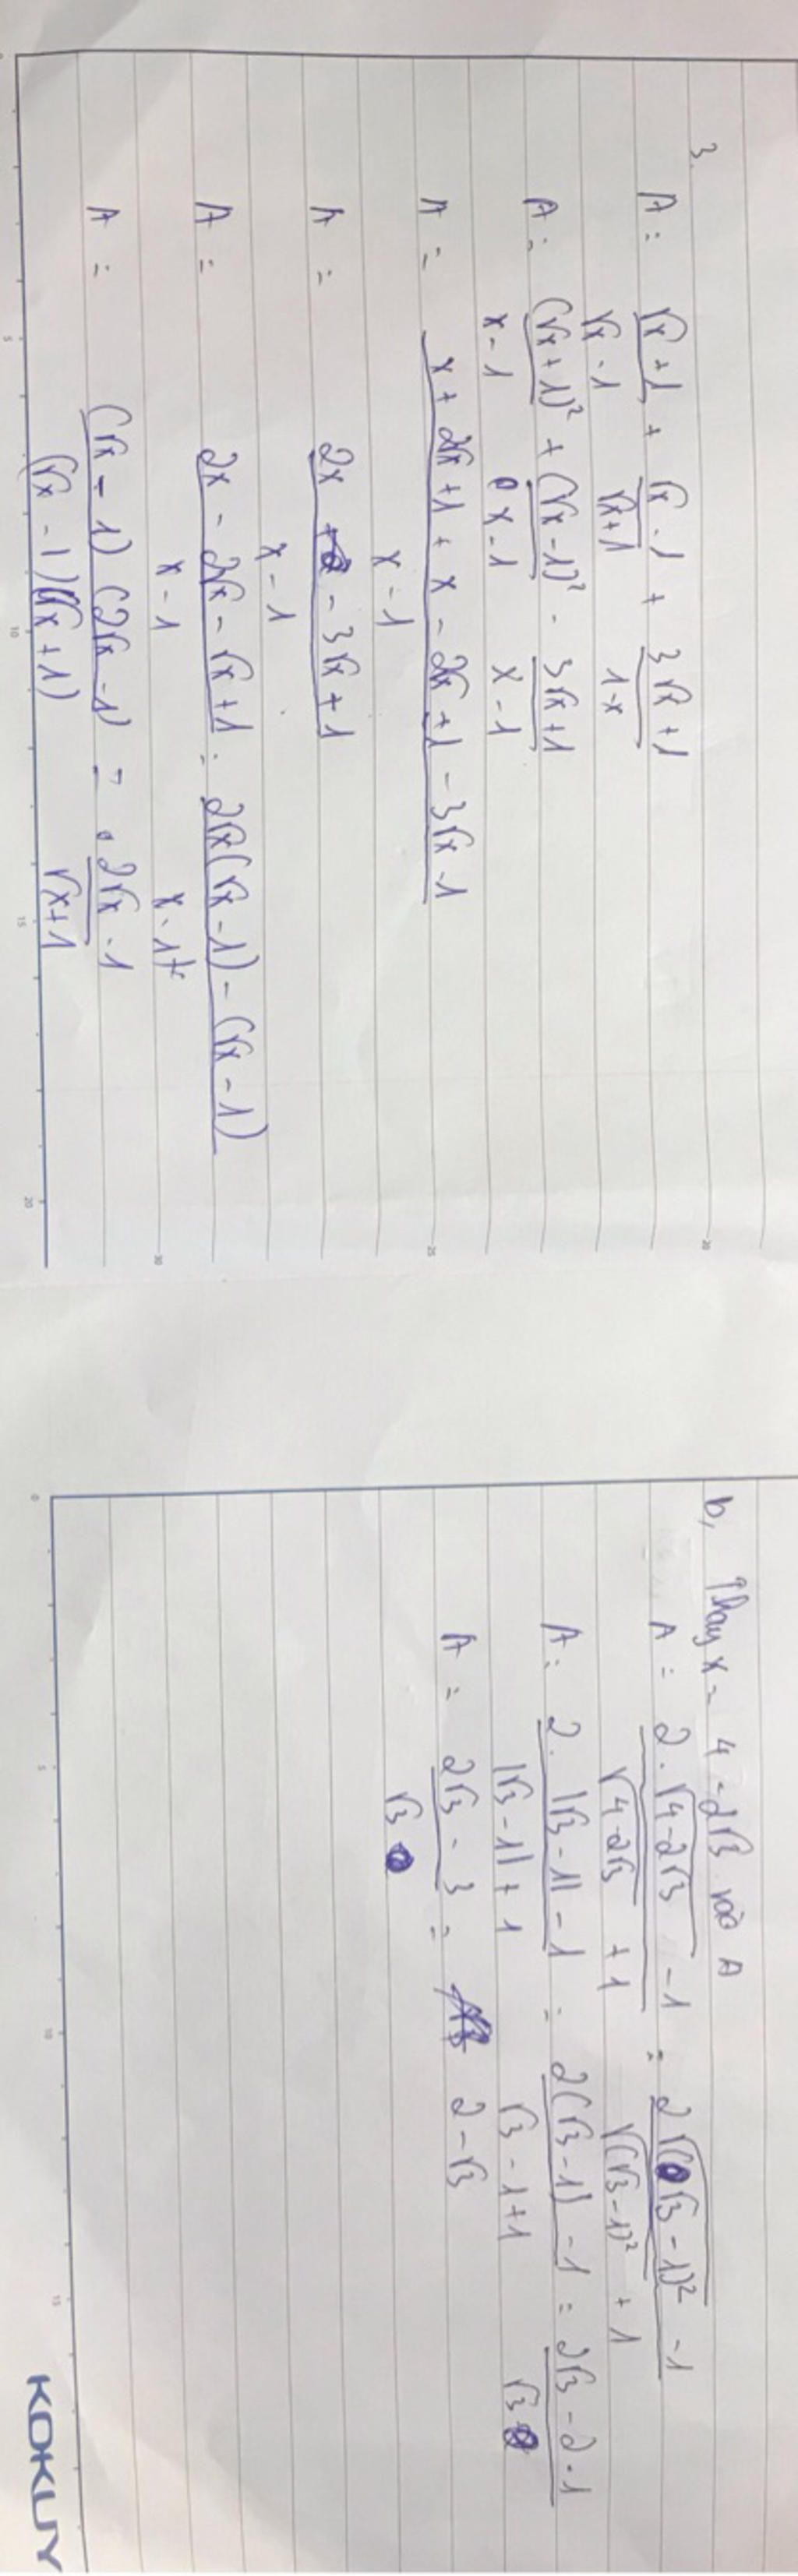 3.
A = (√x + 1)/(√x - 1) + (√x - 1)/(√x + 1) + (3√x + 1)/(1 - x)
A = (√x + 1)²/(x - 1) + (√x - 1)²/(x - 1) - (3√x + 1)/(x - 1)
A = (x + 2√x + 1 + x - 2√x + 1 - 3√x - 1)/(x - 1)
A = (2x - 3√x + 1)/(x - 1)
A = (2x - 2√x - √x + 1)/(x - 1) = (2√x(√x - 1) - (√x - 1))/(x - 1)
A = ((√x - 1)(2√x - 1))/((√x - 1)(√x + 1)) = (2√x - 1)/(√x + 1)
b, Thay x = 4 - 2√3 vào A
A = (2.√(4 - 2√3) - 1)/(√(4 - 2√3) + 1) = (2√((√3 - 1)²) - 1)/(√((√3 - 1)²) + 1)
A = (2.|√3 - 1| - 1)/(|√3 - 1| + 1) = (2(√3 - 1) - 1)/(√3 - 1 + 1) = (2√3 - 2 - 1)/√3
A = (2√3 - 3)/√3 = 2 - √3
KOKUY
20
25
30
5
10
15
20
0
5
10
15